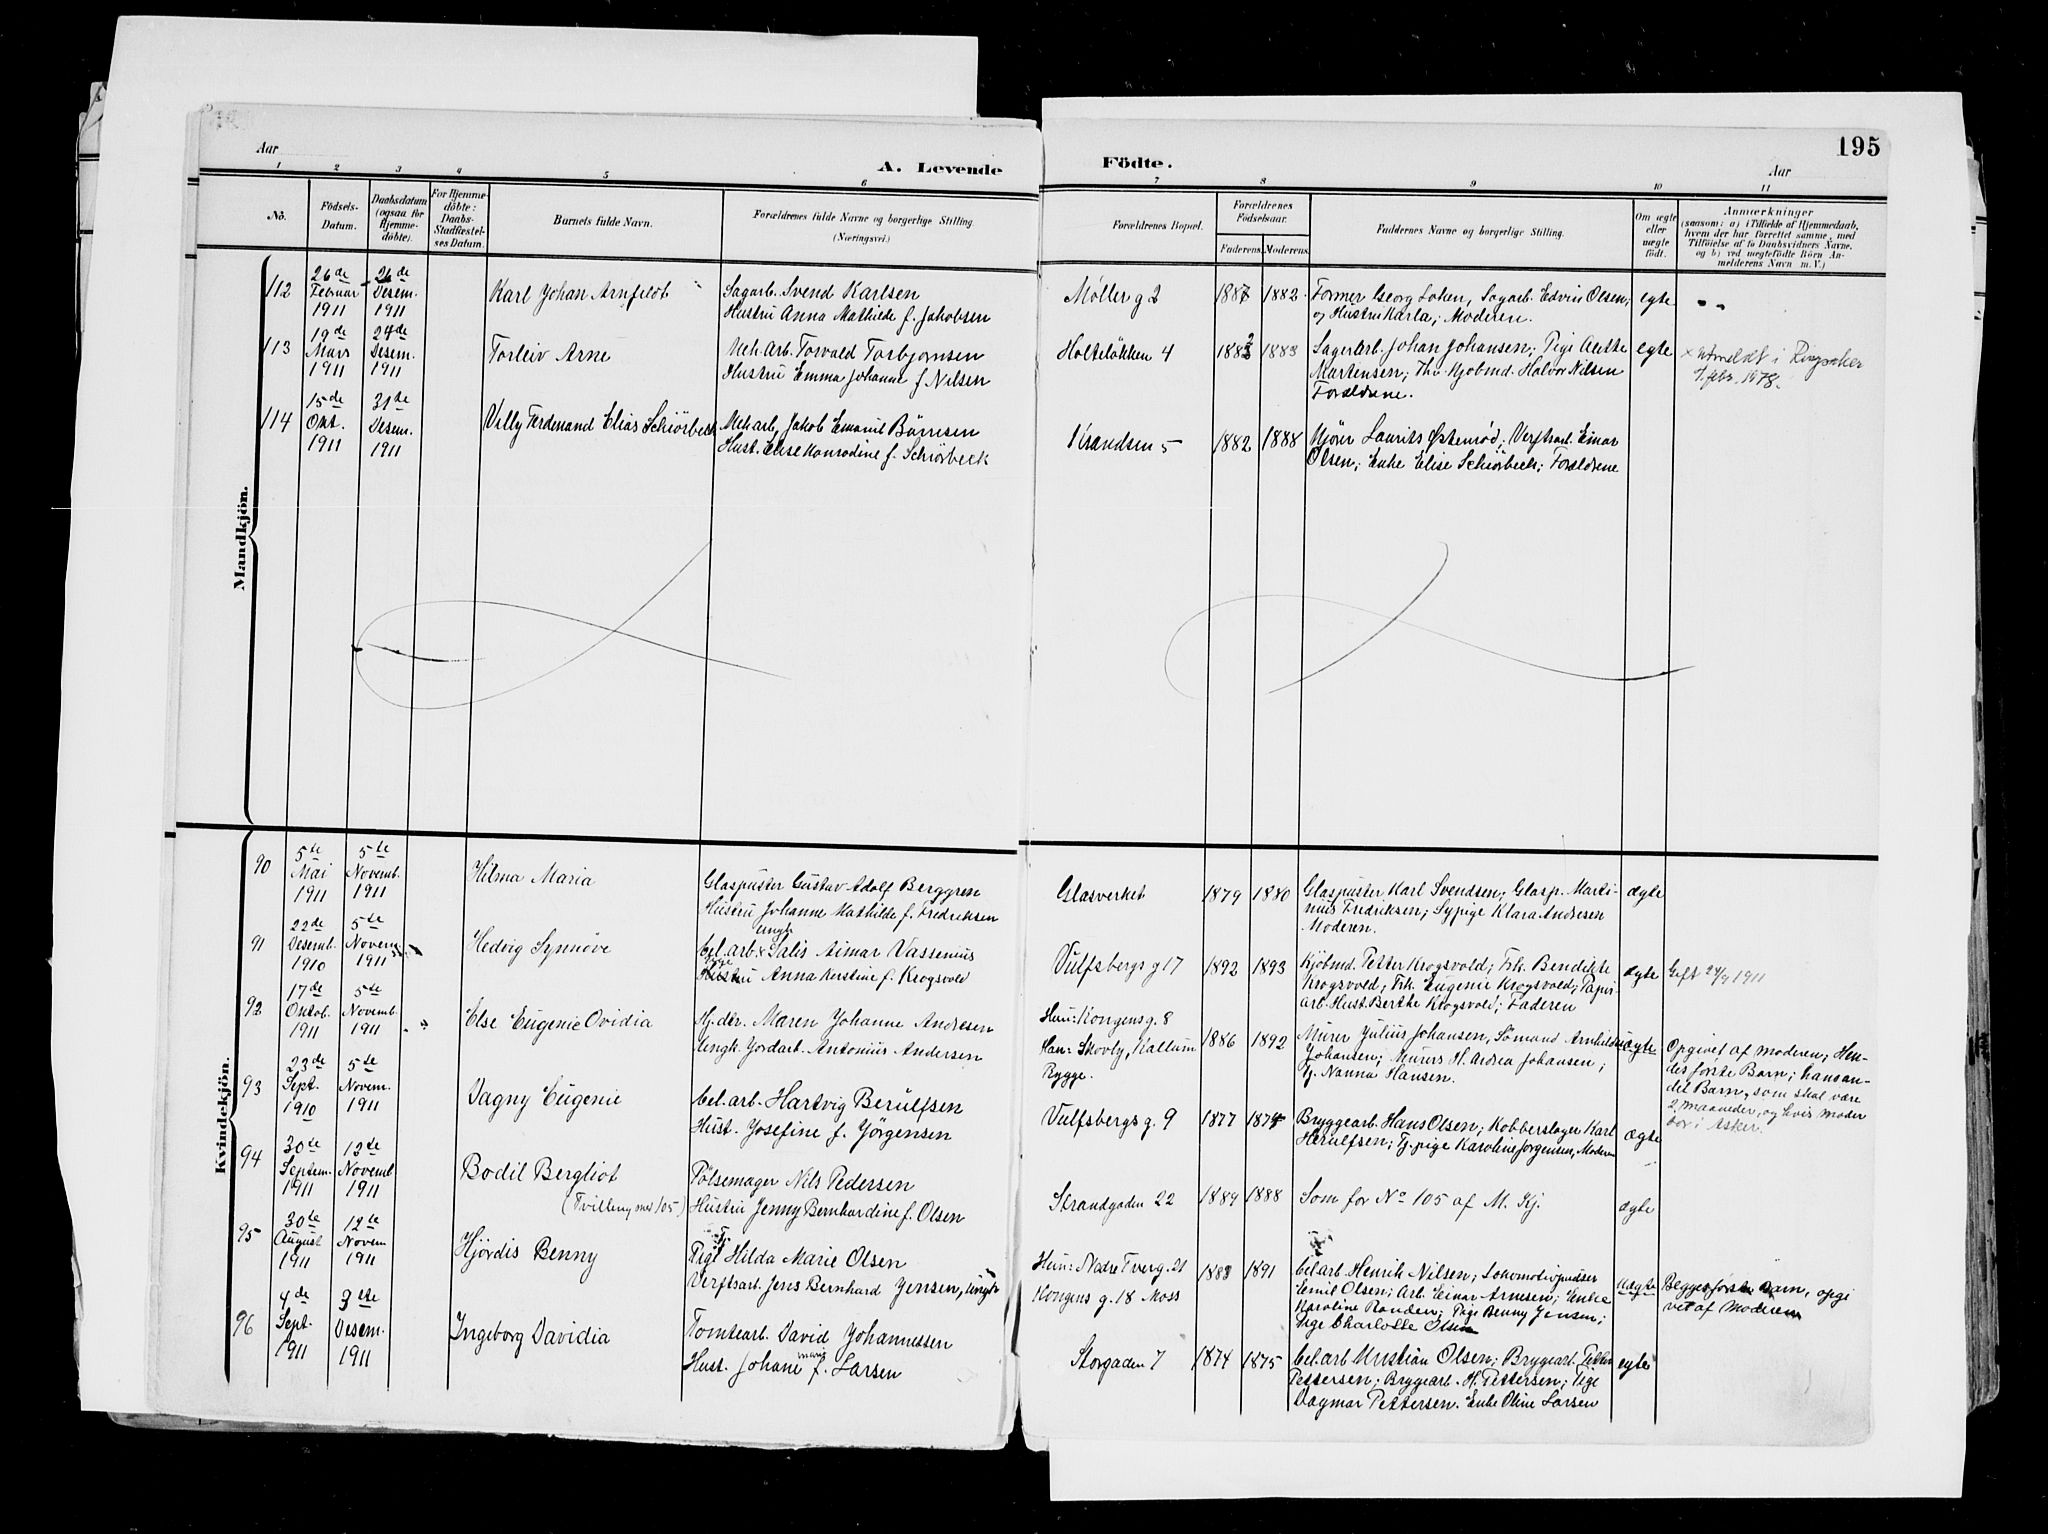 195
Aar
A. Levende
Födte.
Aar
1 2 3 4 5 6 7 8 9 10 11
No.
Födsels-
Datum.
Daabsdatum
(ogsaa for
Hjemme-
döbte).
For Hjemme-
döbte:
Daabs-
Stadfæstel-
ses Datum.
Barnets fulde Navn.
Forældrenes fulde Navne og borgerlige Stilling.
(Næringsvei.)
Forældrenes Bopæl.
Forældrenes
Födselsaar.
Faderens. Moderens.
Faddernes Navne og borgerlige Stilling.
Om ægte
eller
uægte
födt.
Anmærkninger
(saasom: a) i Tilfælde af Hjemmedaab,
hvem der har forrettet samme, med
Tilföielse af to Daabsvidners Navne,
og b) ved uegtefödte Börn An-
melderens Navn m. V.)
Mandkjön.
112
26de
Februar
1911
26de
Desem.
1911
Karl Johan Arnfeldt
Sagarb. Svend Karlsen
Hustru Anna Mathilde f. Jakobsen
Møllerg 2
1887 1882
Former Georg Loken, Sagarb. Edvin Olsen;
og Hustru Karla; Moderen.
egte
113
19de
Mars
1911
24de
Desem.
1911
Torleiv Arne
Mek. Arb. Torvald Torbjørnsen
Hustru Emma Johanne f Nilsen
Holteløkken 4
1882 1883
Sagerarb. Johan Johansen; Pige Alethe
Martensen; Frk. Kjøbmd. Haldor Nilsen
Forældrene.
egte
x utmeldt i Ringsaker
febr. 1978.
114
15de
Okt.
1911
31de
Desem.
1911
Villy Ferdenand Elias Schiørbeck
Mek arb, Jakob Emanuel Børresen
Hust. Elise Konradine f. Schiørbeck
Strandsen 5
1882 1888
Kjører Laurits Østenrød; Verftsarb. Einar
Olsen; Enke Elise Schiørbeck; Forældrene
Kvindekjön.
90
5te
Mai
1911
5te
Novemb.
1911
Hilma Maria
Glaspuster Gustav Adolf Berggren
Hustru Johanne Mathilde f. Fredriksen
Glasverket
1879 1880
Glaspuster Karl Svendsen; Glasp. Marti-
nius Fredriksen; Sypige Klara Andresen
Moderen.
ægte
91
22de
Desemb.
1910
5te
Novem.
1911
Hedvig Synnøve
ungk
Cel. arb. Salis Aimar Vassenius
Pige
Hustru Anna Kerstine f. Krogsvold
Vulfsbergs g 17
1892 1893
Kjøbmd. Petter Krogsvold; Frk. Bendikte
Krogsvold; Frk. Eugenie Krogsvold; Papir
arb. Hust. Berthe Krogsvold; Faderen
ægte
Gift 24/9 1911
92
17de
Oktob.
1911
5te
Novemb.
1911
Else Eugenie Ovidia
Hj. dtr. Maren Johanne Andresen
Ungk. Jordarb. Antonius Andersen
Hun: Kongensg. 8
Han: Skovly, Kallum
Rygge.
1886 1892
Murer Julius Johansen, Sømand Arnhildus
Johansen; Murers H. Andrea Johansen;
Tj. Nanna Hansen.
uægte
Opgivet af moderen; Hen-
des første Barn; hans an-
det Barn, som skal være
2 maaneder, og hvis moder
bor i Asker.
93
23de
Sept.
1910
5te
Novem.
1911
Dagny Eugenie
Cel. arb. Hartvig Berulfsen
Hust. Josefine f. Jørgensen
Vulfsbergs g. 9
1877 1874
Bryggearb. Hans Olsen; Kobberslager Karl
Herulfsen; Tj. pige Karoline Jorgensen, Moderen
ægte
94
30te
Septem.
1911
12te
Novemb
1911
Bodil Bergliot
(Tvilling med 105)
Pølsemager Nils Pedersen
Hustru Jenny Bernhardine f. Olsen
Strandgaden 22
1889 1888
Som for No 105 af M. Kj.
ægte
95
30te
August
1911
12te
Novem
1911
Hjørdis Benny
Tj.
Pige Hilda Marie Olsen
Verftsarb. Jens Bernhard Jensen, ungk
Hun: Nedre Tverg. 21
Kongens g. 18 Moss
1888 1891
Cel. arb. Henrik Nilsen; Lokomotivpudser
Emil Olsen; Arb. Einar Arnesen; Enke
Karoline Randen; Pige Benny Jensen;
Pige Charlotte Olsen
uægte
Begges første Barn, opgi
vet af Moderen
96
4de
Sept.
1911
3die
Desem.
1911
Ingeborg Davidia
Tomtearb. David Johannessen
Hust. Johane Marie f. Larsen
Storgaden 7
1874 1875
Cel. arb Kristian Olsen; Brygearb. Petter
Pettersen; Brygearb. H. Pettersen; Pige
Dagmar Pettersen. Enke Oline Larsen
egte